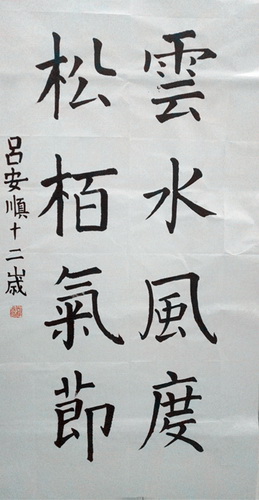 雲水風度
松栢氣節
呂安順十二歲